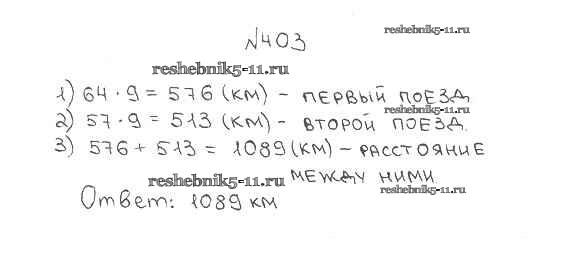 №403
reshebnik5-11.ru
reshebnik5-11.ru
1) 64 · 9 = 576 (км) - первый поезд
reshebnik5-11.ru
2) 57 · 9 = 513 (км) - второй поезд.
3) 576 + 513 = 1089 (км) - расстояние
между ними
reshebnik5-11.ru
reshebnik5-11.ru
Ответ: 1089 км